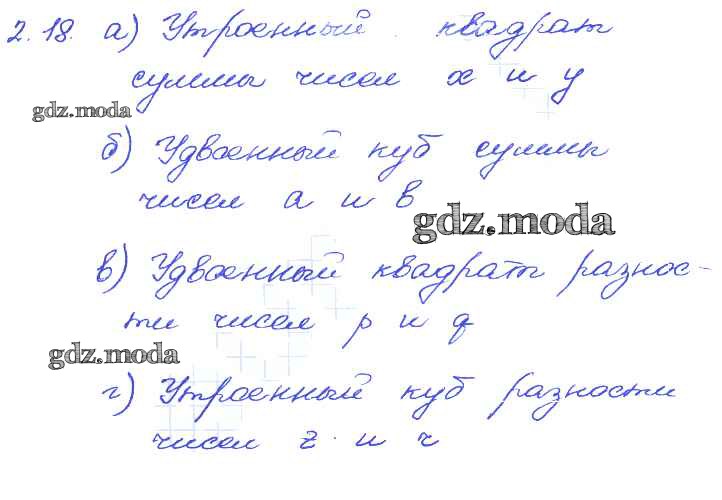 2.18. а) Утроенный квадрат
суммы чисел x и y
gdz.moda
б) Удвоенный куб суммы
чисел a и b
gdz.moda
в) Удвоенный квадрат разнос-
ти чисел p и q
gdz.moda
г) Утроенный куб разности
чисел z и r